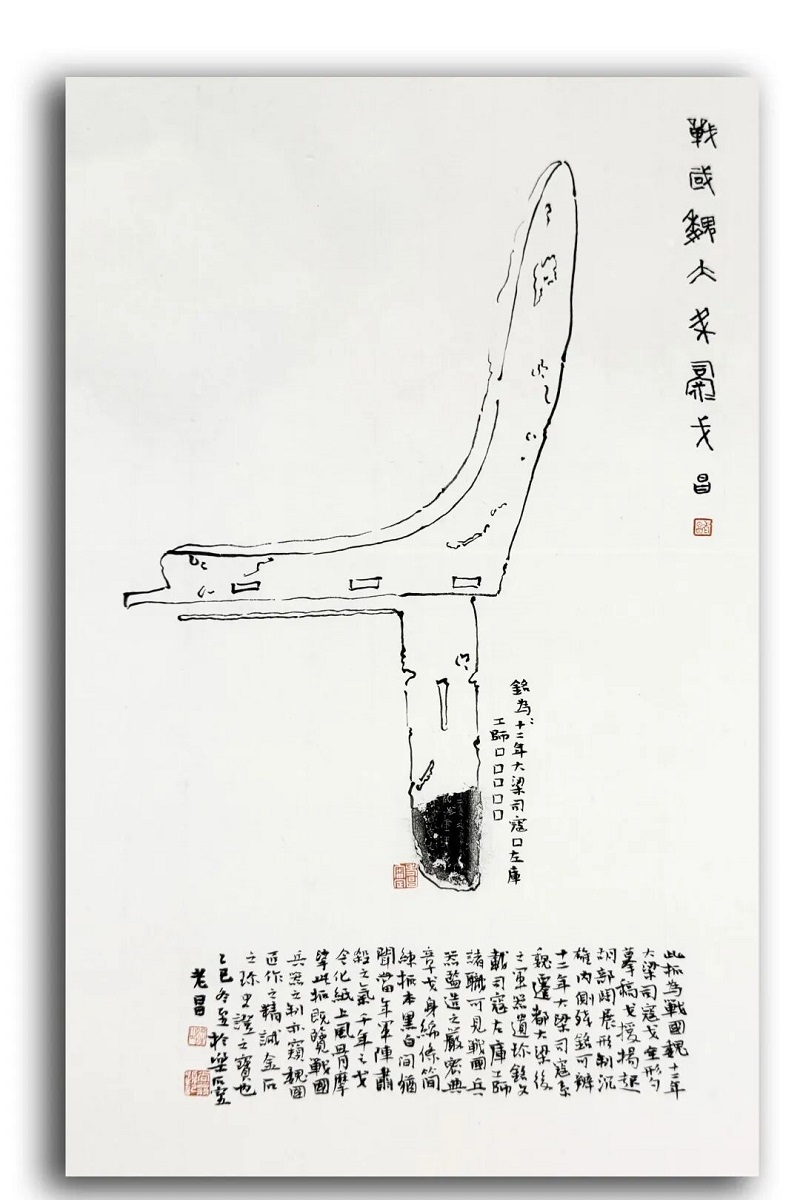 戰國魏大梁司寇戈 昌
銘為:十二年大梁司寇口左庫
工師口口口口口
此拓為戰國魏十二年
大梁司寇戈全形勾
摹稿戈援揚起
胡部闊展形制沉
雄內側殘銘可辨
十二年大梁司寇系
魏遷都大梁後
之軍器遺珍銘文
載司寇左庫工師
諸職可見戰國兵
器監造之嚴密典
章戈身線條簡
練拓本黑白間猶
聞當年軍陣肅
殺之氣千年之戈
今化紙上風骨摩
挲此拓既覽戰國
兵器之制亦窺魏國
匠作之精誠金石
之珍史證之寶也
乙巳冬
老昌